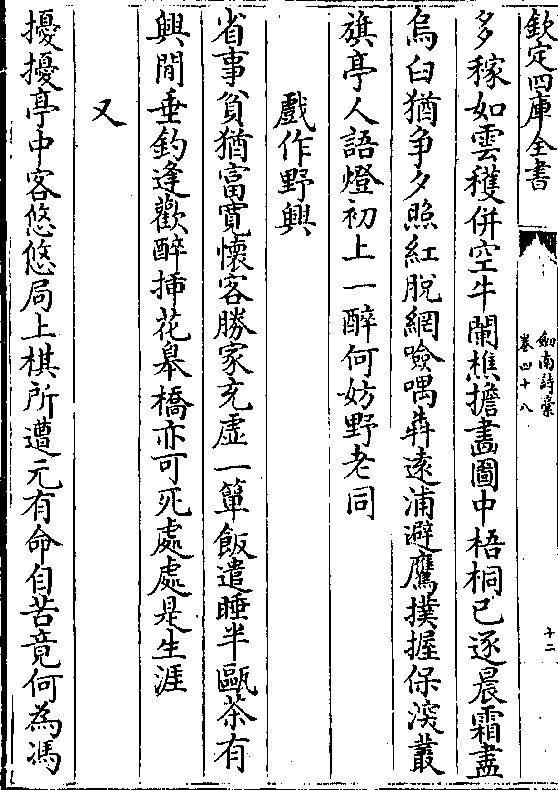 欽定四庫全書
劍南詩稾
卷四十八
十二
多稼如雲穫併空牛闌樵擔畵圖中梧桐已逐晨霜盡
烏臼猶争夕照紅脫網噞喁犇遠浦避鷹撲握保深叢
旗亭人語燈初上一醉何妨野老同
戲作野興
省事貧猶富寛懷客勝家充虛一簞飯遣睡半甌茶有
興閒垂釣逢歡醉揷花皋橋亦可死處處是生涯
又
擾擾亭中客悠悠局上棋所遭元有命自苦竟何為馮